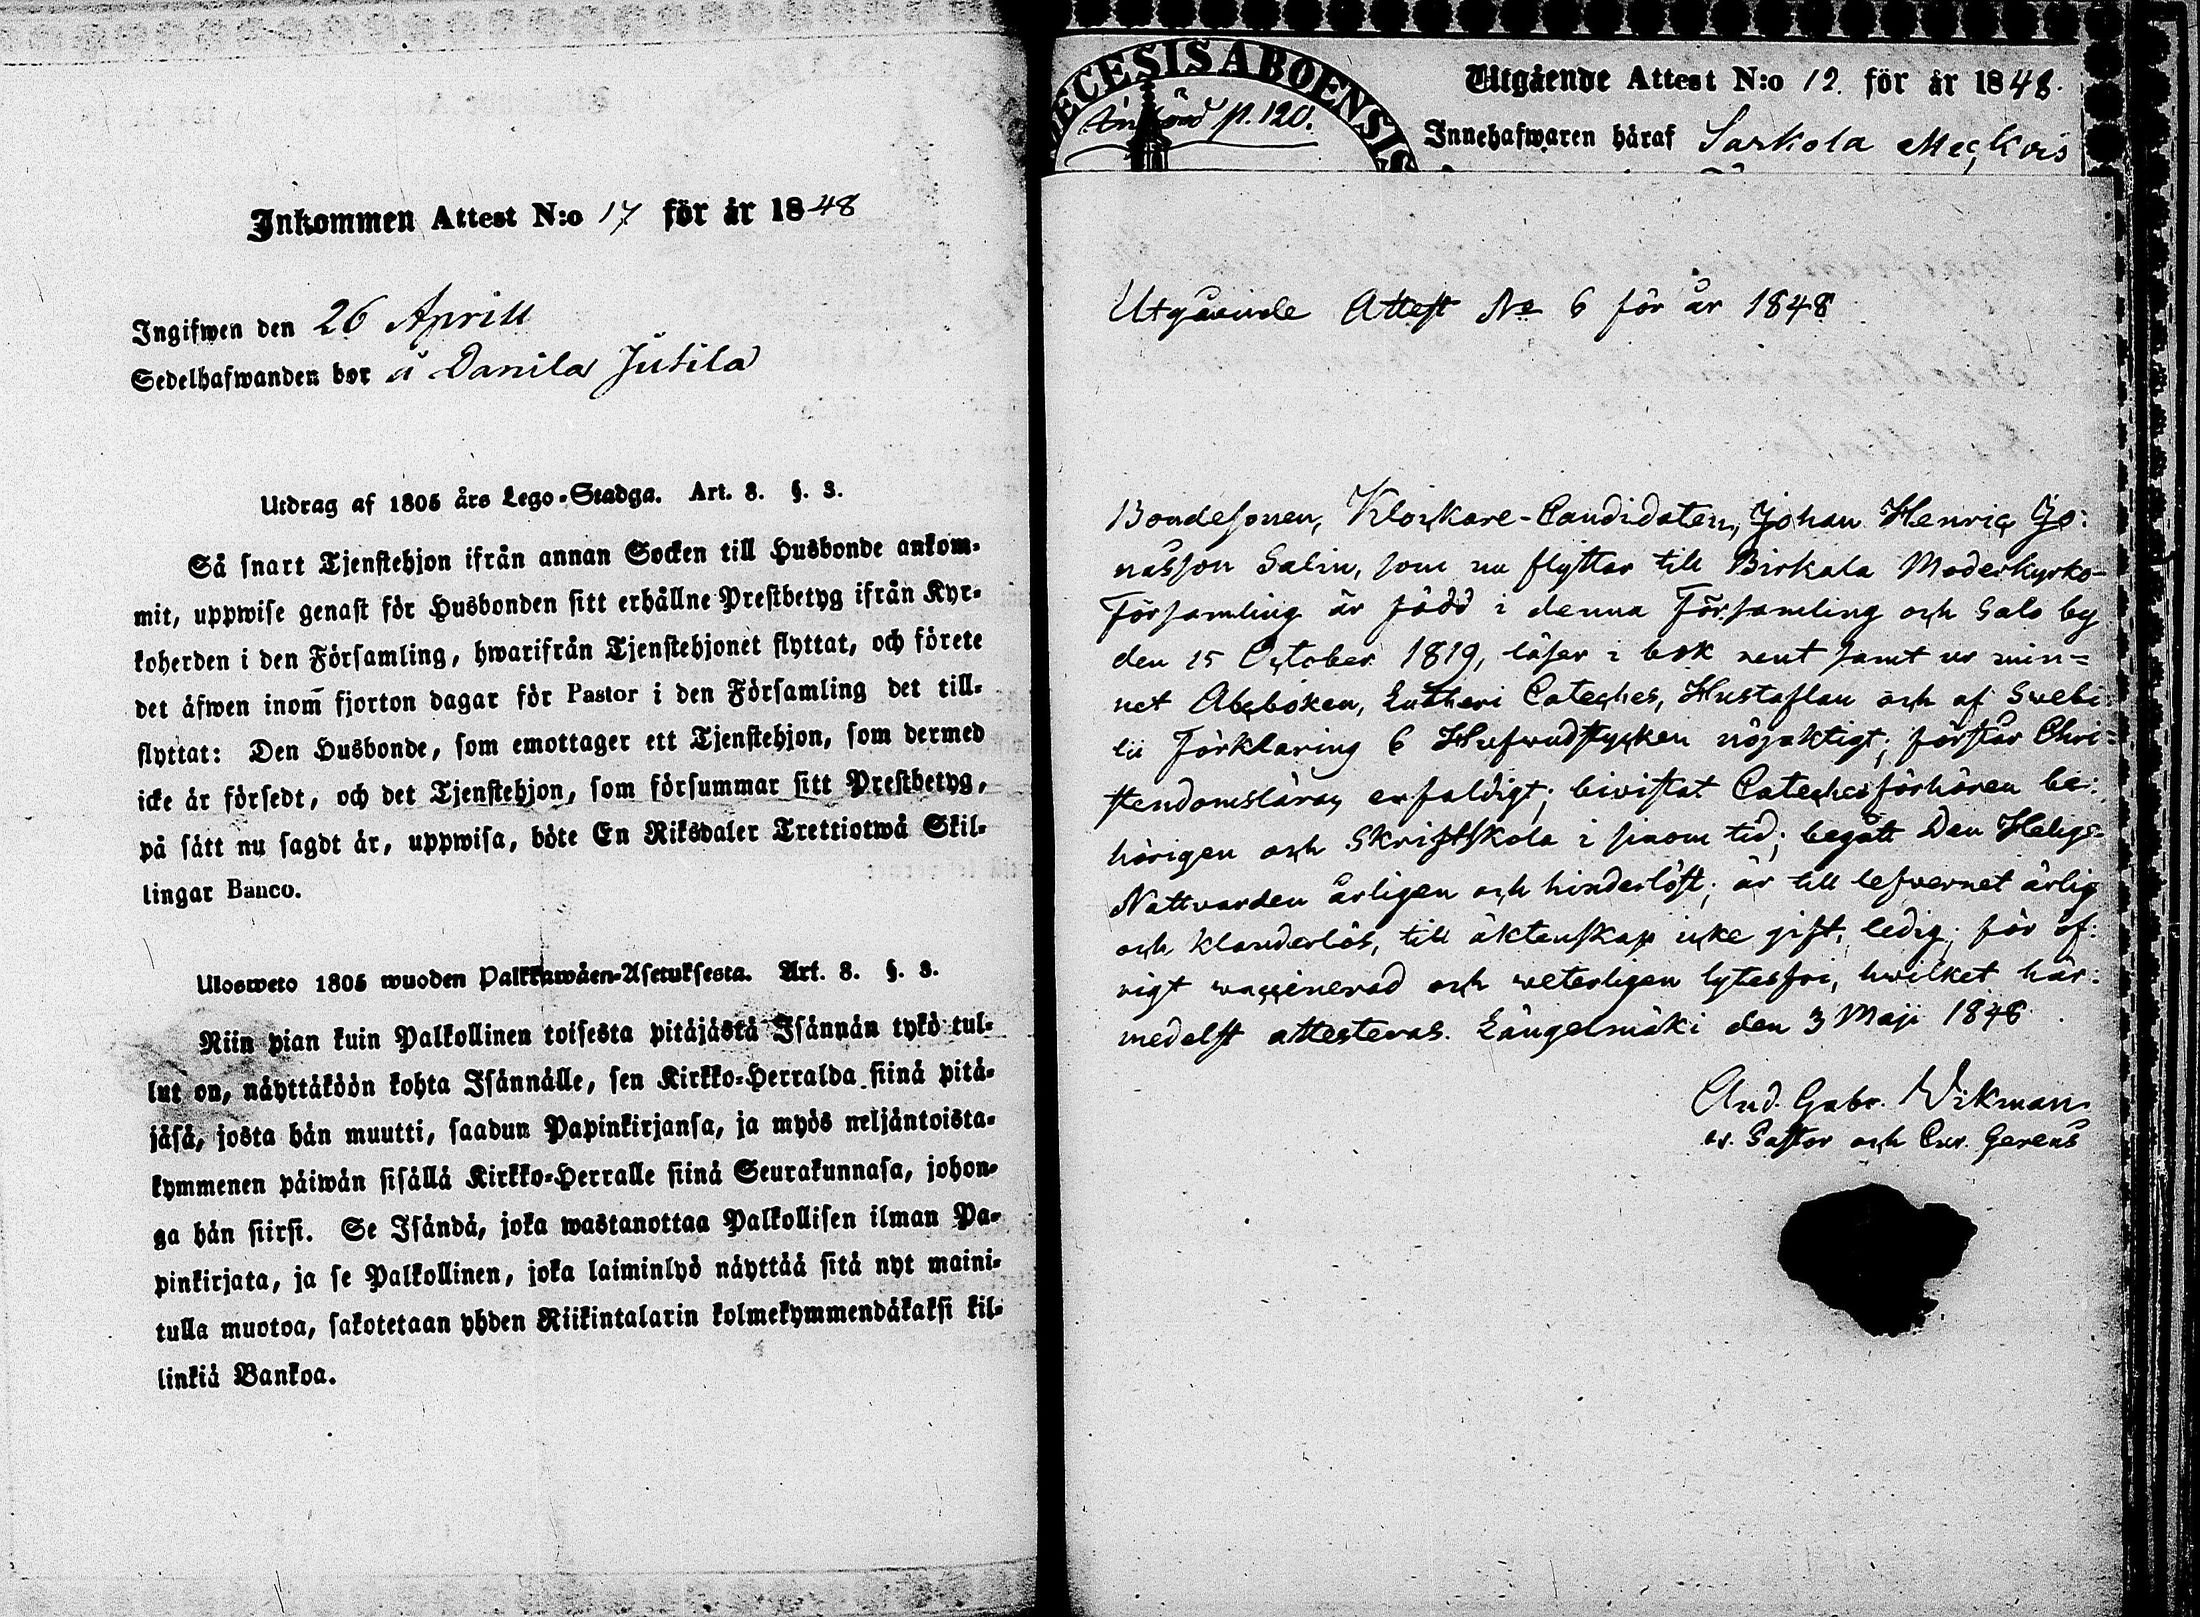 Inkommen Attest N:o 17 för år 1848
Ingifwen den 26 Aprill
Sedelhafwanden bor å Danila Jutila
Utdrag af 1805 års Lego-Stadga. Art. 8. §. 3.
Så snart Tjenstehjon ifrån annan Socken till Husbonde ankom-
mit, uppwise genast för Husbonden sitt erhållne Prestbetyg ifrån Kyr-
koherden i den Församling, hwarifrån Tjenstehjonet flyttat, och förete
det äfwen inom̄ fjorton dagar för Pastor i den Församling det till-
flyttat: Den Husbonde, som emottager ett Tjenstehjon, som dermed
icke är försedt, och det Tjenstehjon, som försummar sitt Prestbetyg,
på sätt nu sagdt är, uppwisa, böte En Riksdaler Trettiotwå Skil-
lingar Banco.
Ulosweto 1805 wuoden Palkkawäen-Asetuksesta. Art. 8. §. 3.
Niin pian kuin Palkollinen toisesta pitäjästä Isännän tykö tul-
lut on, näyttäköön kohta Isännälle, sen Kirkko-Herralda siinä pitä-
jäsä, josta hän muutti, saadun Papinkirjansa, ja myös neljäntoista-
kymmenen päiwän sisällä Kirkko-Herralle siinä Seurakunnasa, johon-
ga hän siirsi. Se Isändä, joka wastanottaa Palkollisen ilman Pa-
pinkirjata, ja se Palkollinen, joka laiminlyö näyttää sitä nyt maini-
tulla muotoa, sakotetaan yhden Riikintalarin kolmekymmendäkaksi kil-
linkiä Bankoa.
ECESIS ABOENSIS
p. 120.
Utgående Attest N:o 12. för år 1848.
Innehafwaren häraf Sarkola
Utgående Attest No 6 för år 1848
Bondesonen, Klockare-Candidaten, Johan Henric Jo:
nasson Salin, som nu flyttar till Birkala Moderkyrko-
Församling är född i denna Församling och Salo by
den 15 October 1819, läser i bok rent samt ur min=
net Abcboken, Lutheri Cateches, Hustaflan och af Swebi:
lii Förklaring 6 Hufwudstycken nöjaktigt; förstår Chri=
stendomsläran enfaldigt; biwistat Catechesförhören be:
hörigen och Skriftskola i sinom tid; begått Den Helige
Nattvarden årligen och hinderlöst; är till lefvernet ärlig
och klanderlös, till äktenskap icke gift, ledig; för öf:
rigt waccinerad och weterligen lytesfri, hwilket här:
medelst attesteras. Längelmäki den 3 Maji 1848.
And. Gabr. Wikman
v. Pastor och Cur. Gerens